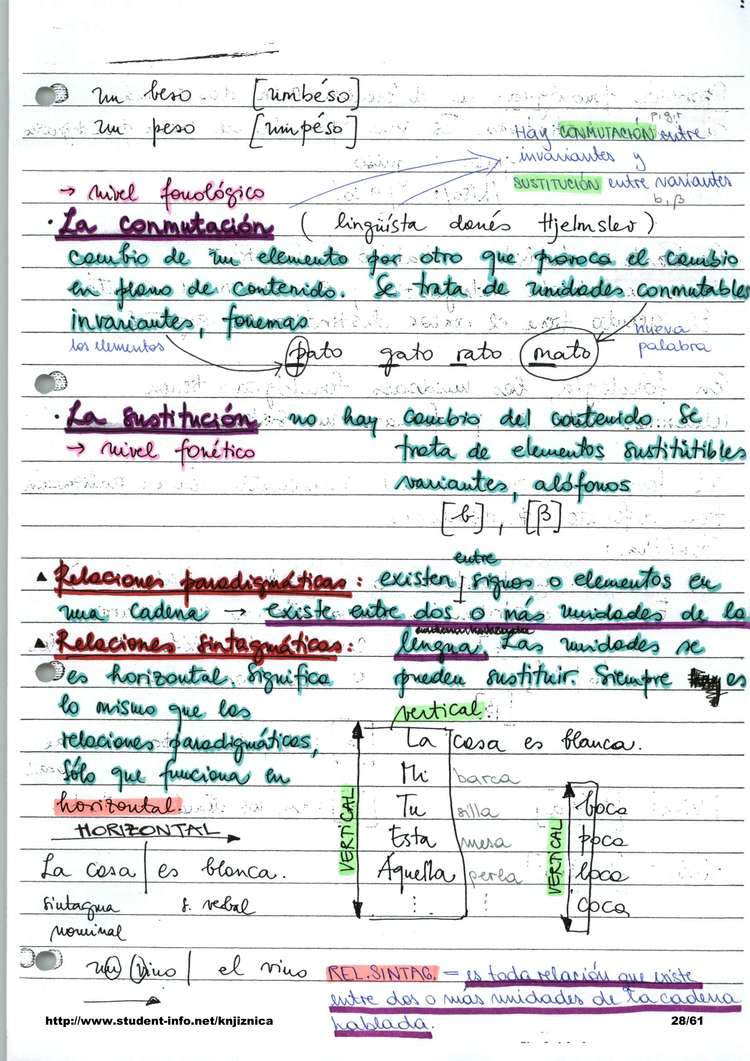 un beso [umbéso]
un peso [umpéso]
Hay CONMUTACIÓN entre
invariantes y
SUSTITUCIÓN entre variantes
b, β
→ nivel fonológico
· La conmutación (lingüista danés Hjelmslev)
cambio de un elemento por otro que provoca el cambio
en plano de contenido. Se trata de unidades conmutables
invariantes, fonemas
los elementos
pato gato rato mato
nueva
palabra
· La sustitución no hay cambio del contenido. Se
→ nivel fonético trata de elementos sustitútibles
variantes, alófonos
[b], [β]
▲ Relaciones paradigmáticas: existen entre signos o elementos en
una cadena → existe entre dos o más unidades de la
lengua. Las unidades se
pueden sustituir. Siempre es
vertical.
▲ Relaciones sintagmáticas:
es horizontal. Significa
lo mismo que las
relaciones paradigmáticas,
sólo que funciona en
horizontal.
HORIZONTAL
La casa | es blanca.
sintagma s. verbal
nominal
VERTICAL
La casa es blanca.
Mi barca
Tu silla
Esta mesa
Aquella perla
⋮ ⋮
VERTICAL
boca
poca
loca
coca
un vino | el vino
REL. SINTAG. = es toda relación que existe
entre dos o más unidades de la cadena
hablada.
http://www.student-info.net/knjiznica 28/61